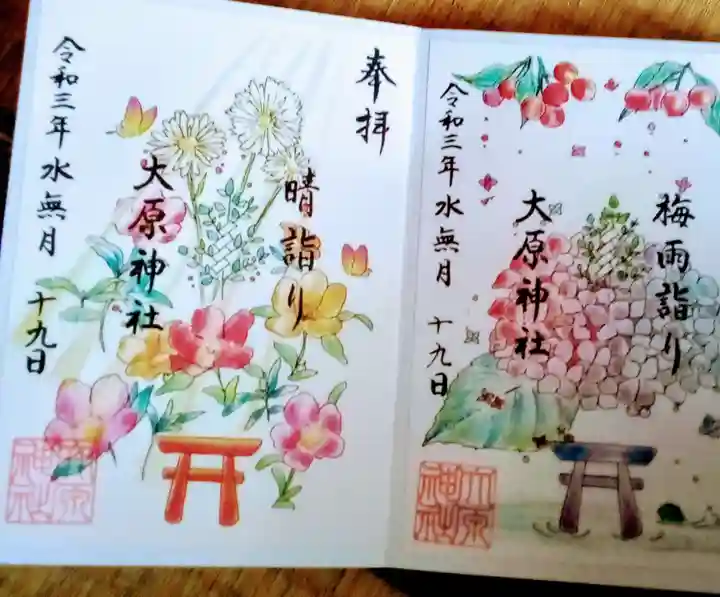 奉拝
晴詣り
大原神社
令和三年 水無月 十九日
大原神社
梅雨詣り
大原神社
令和三年 水無月 十九日
大原神社